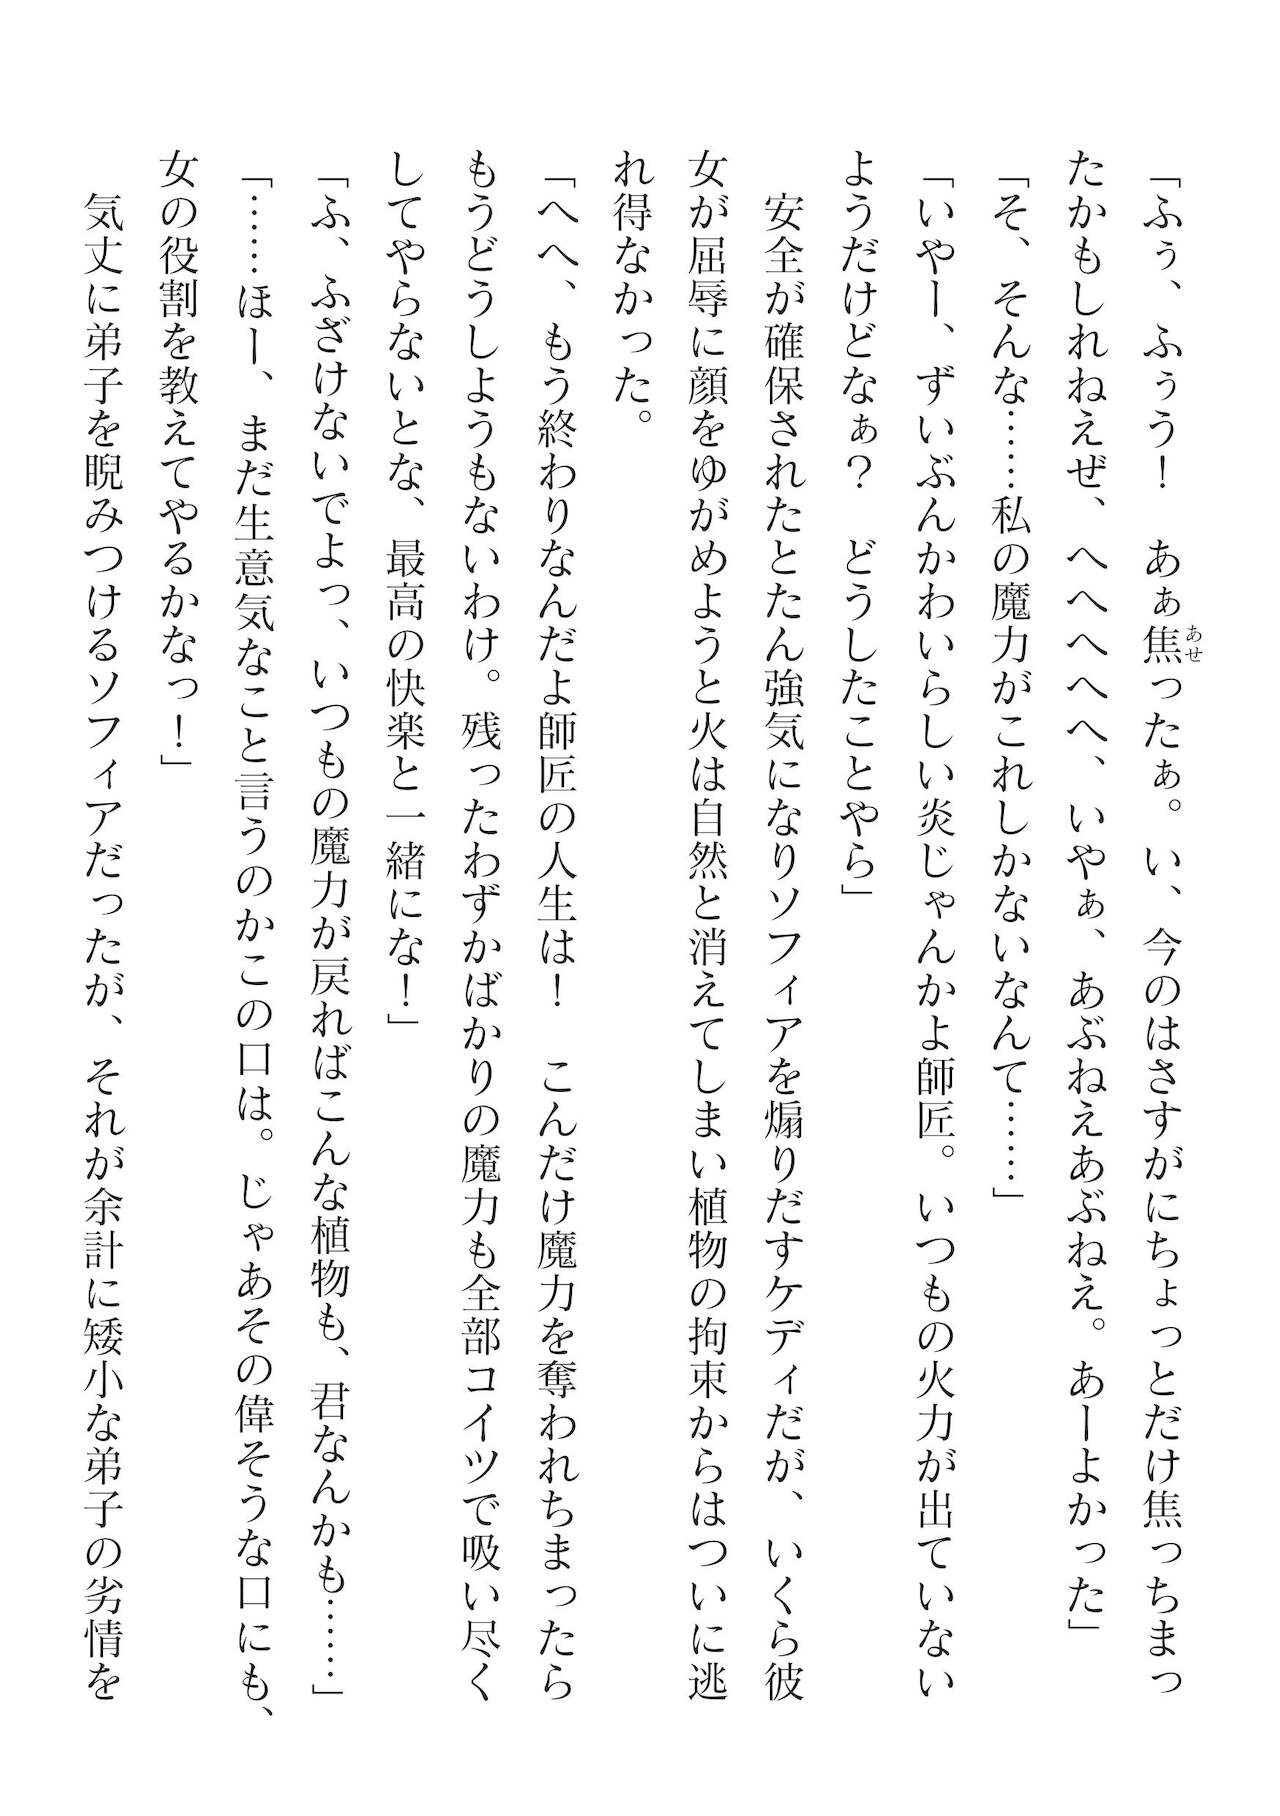 「ふぅ、ふぅう！　あぁ焦ったぁ。い、今のはさすがにちょっとだけ焦っちまっ
あせ
たかもしれねえぜ、へへへへへ、いやぁ、あぶねえあぶねえ。あーよかった」
「そ、そんな……私の魔力がこれしかないなんて……」
「いやー、ずいぶんかわいらしい炎じゃんかよ師匠。いつもの火力が出ていない
ようだけどなぁ？　どうしたことやら」
　安全が確保されたとたん強気になりソフィアを煽りだすケディだが、いくら彼
女が屈辱に顔をゆがめようと火は自然と消えてしまい植物の拘束からはついに逃
れ得なかった。
「へへ、もう終わりなんだよ師匠の人生は！　こんだけ魔力を奪われちまったら
もうどうしようもないわけ。残ったわずかばかりの魔力も全部コイツで吸い尽く
してやらないとな、最高の快楽と一緒にな！」
「ふ、ふざけないでよっ、いつもの魔力が戻ればこんな植物も、君なんかも……」
「……ほー、まだ生意気なこと言うのかこの口は。じゃあその偉そうな口にも、
女の役割を教えてやるかなっ！」
　気丈に弟子を睨みつけるソフィアだったが、それが余計に矮小な弟子の劣情を